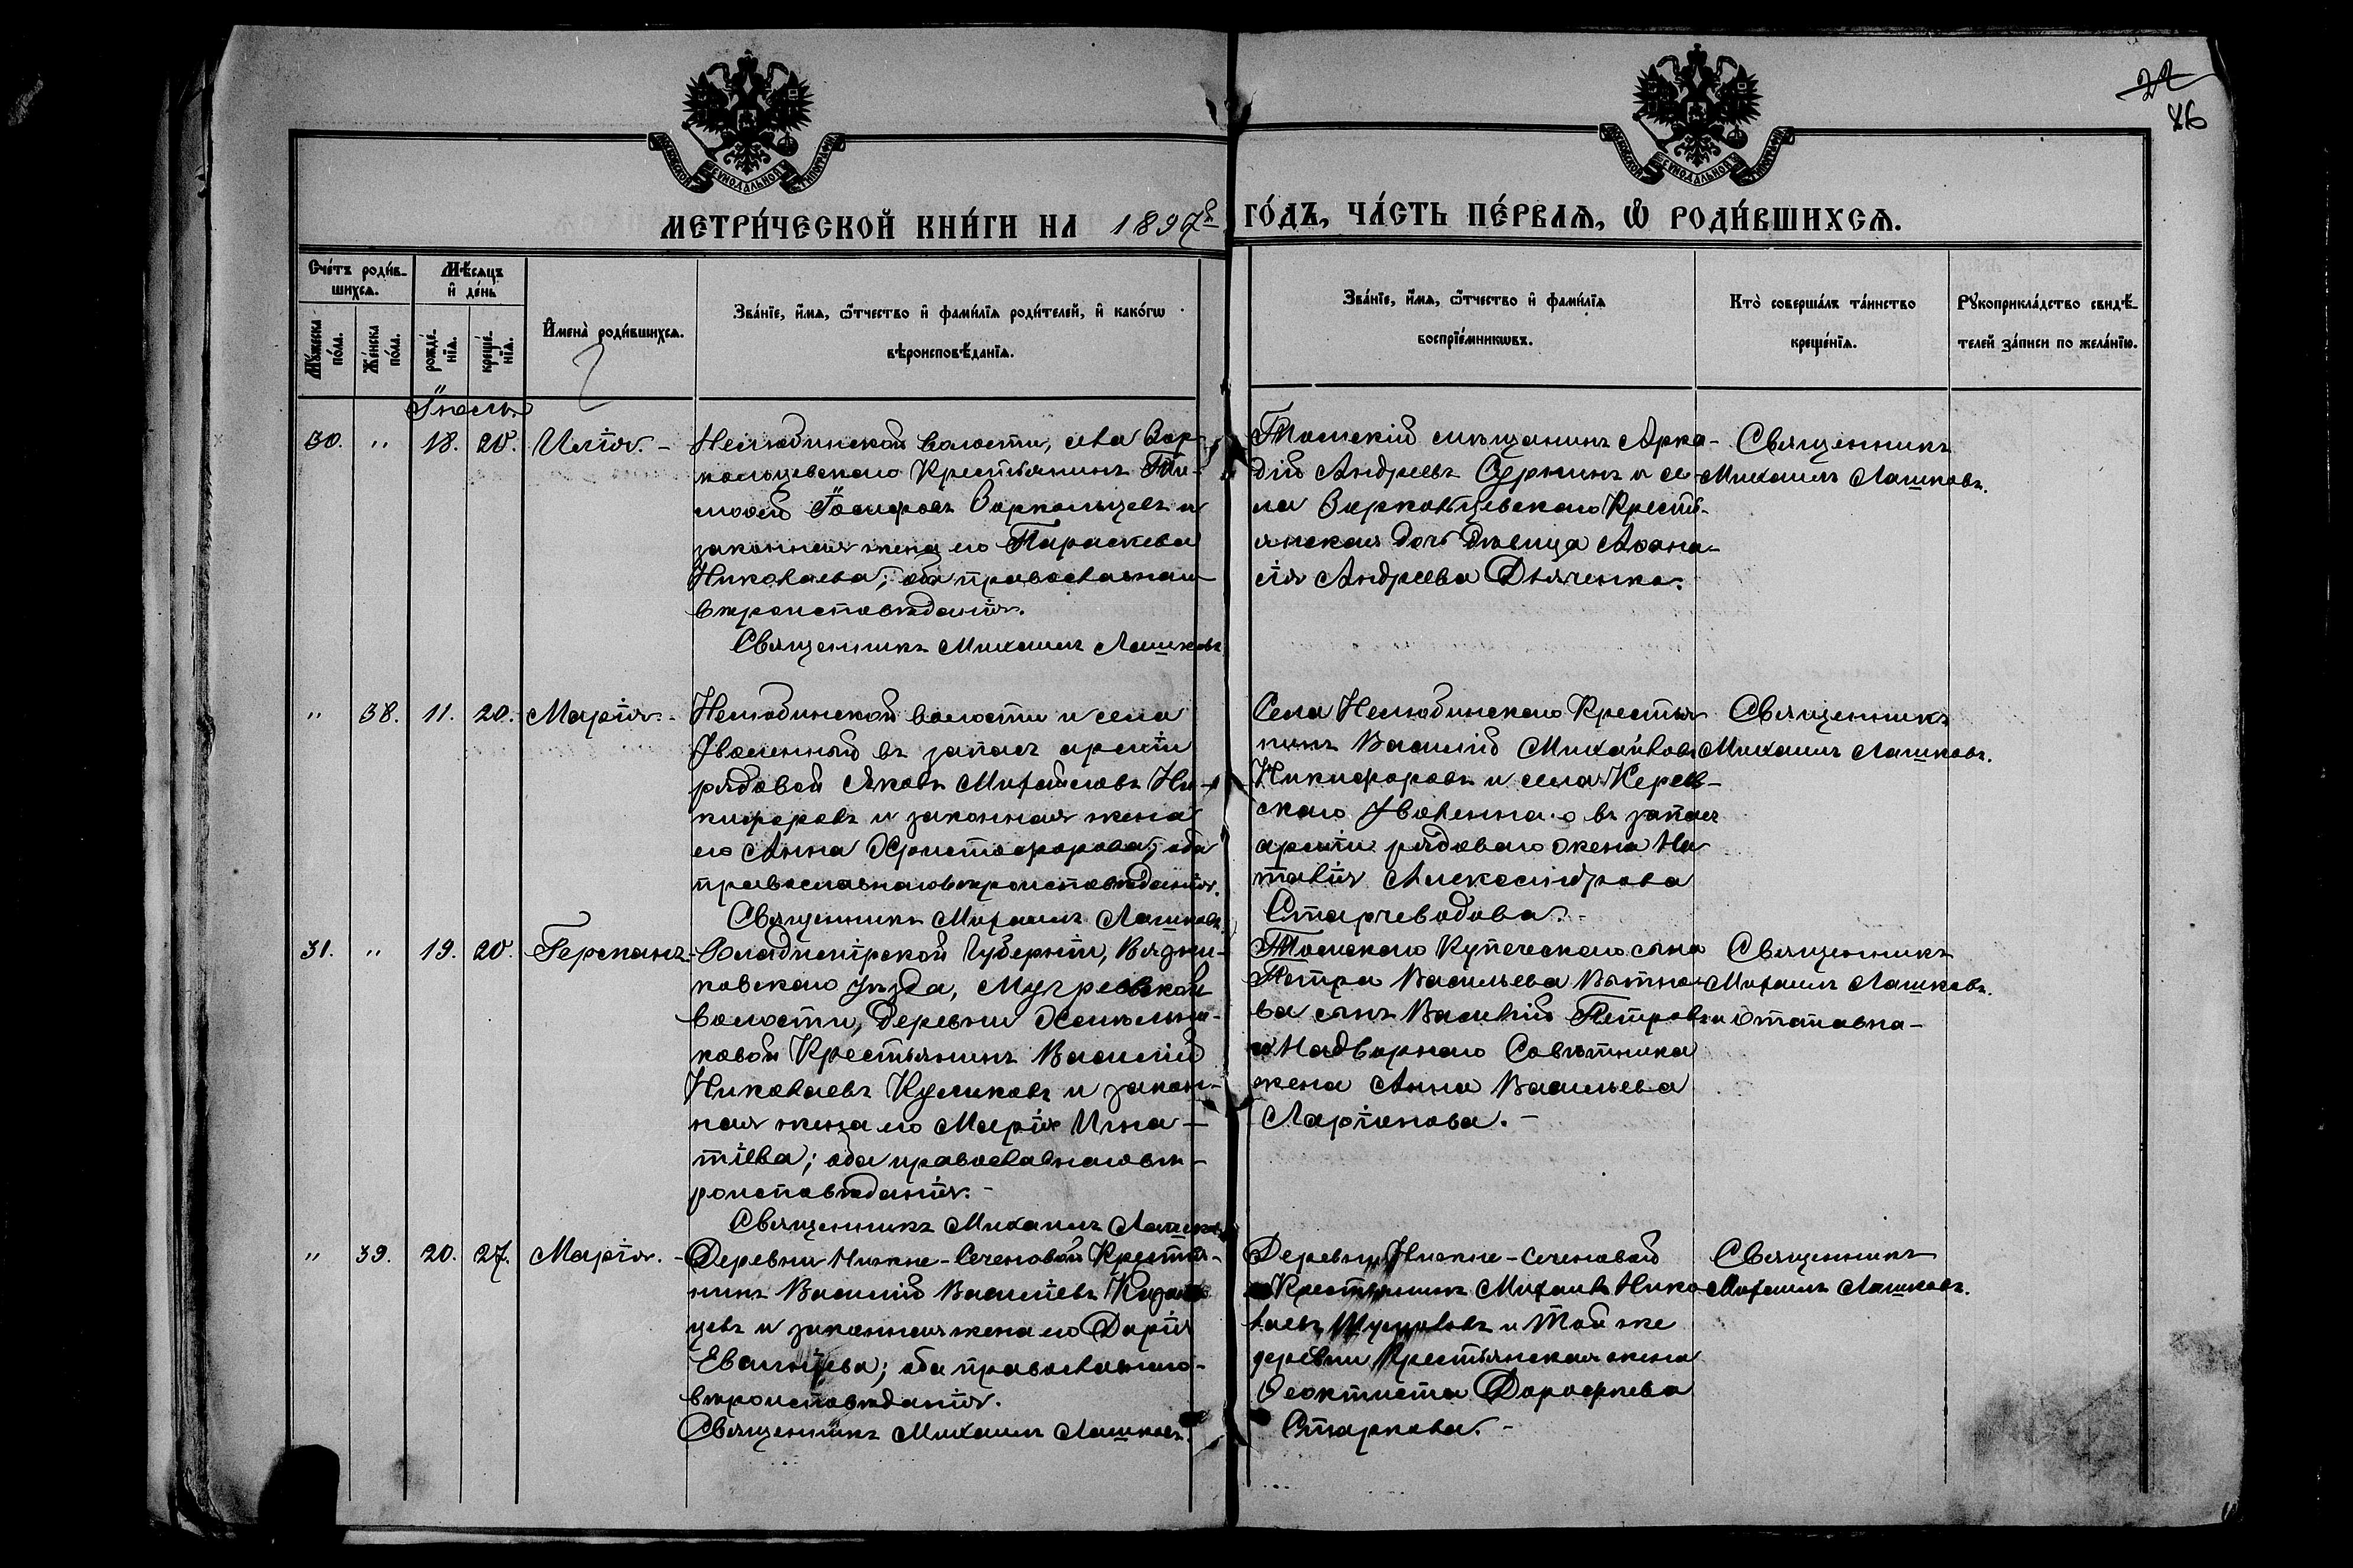 22
86
МЕТРИ́ЧЕСКОЙ КНИ́ГИ НА 1897й ГО́ДЪ, ЧА́СТЬ ПЕ́РВАѦ, Ѿ РОДИ́ВШИХСѦ.
Сче́тъ роди́в-
шихсѧ.
Мѣ́сѧцъ
и҆ де́нь
Мꙋ́жеска по́ла.
Же́нска по́ла.
рожде́нїѧ.
креще́нїѧ.
И҆мена̀ роди́вшихсѧ.
Зва́нїе, и҆́мѧ, ѻ҆́тчество и҆ фами́лїѧ роди́телей, и҆ како́гѡ
вѣроисповѣ́данїѧ.
Зва́нїе, и҆́мѧ, ѻ҆́тчество и҆ фами́лїѧ
воспрїе́мникѡвъ.
Кто̀ соверша́лъ та́инство
креще́нїѧ.
Рꙋкоприкла́дство свидѣ́-
телей за́писи по жела́нїю.
Іюль
30. " 18. 20. Илія. -
Нелюбинской волости, села Вар-
кольцевскаго Крестьянинъ Ти-
моѳей Іосифовъ Варкольцевъ и
законная жена его Параскева
Николаева; оба православнаго
вѣроисповѣданія.
Священникъ Михаилъ Лашковъ
Томскій мѣщанинъ Арка-
дій Андреевъ и се-
ла Крестья-
янская дочь дѣвица Аѳана-
сія Андреева Дьяченко.
Священникъ
Михаилъ Лашковъ.
" 38. 11. 20. Марія. -
Нелюбинской волости и села
Уволенный въ запасъ арміи
рядовой Яковъ Михайловъ Ни-
кифоровъ и законная жена
его Анна Христофорова; оба
православнаго вѣроисповѣданія.
Священникъ Михаилъ Лашковъ
Села Нелюбинскаго Крестья-
нинъ Василій Михайловъ
Никифоровъ и села Керев-
скаго Уволеннаго въ запасъ
арміи рядоваго жена На
талія Александрова
Старчеводова. -
Священникъ
Михаилъ Лашковъ.
31. " 19. 20. Германъ -
Владимірской Губерніи, Вязни-
ковскаго уѣзда, Мугреевской
волости, деревни
ковой Крестьянинъ Василій
Николаевъ Куликовъ и закон-
ная жена его Марія Игна-
тіева; оба православнаго вѣ-
роисповѣданія. -
Священникъ Михаилъ Лашковъ
Томскаго Купеческаго сына
Петра Васильева Вытно-
ва сынъ Василій Петровъ и отставна-
го Надворнаго Совѣтника
жена Анна Васильева
Ларіонова. -
Священникъ
Михаилъ Лашковъ.
" 39. 20. 27. Марія. -
Деревни Нижне-Сеченовой Крестья-
нинъ Василій Васильевъ Казан-
цевъ и законная жена его Дарія
; оба православнаго
вѣроисповѣданія.
Священникъ Михаилъ Лашковъ.
Деревни Нижне-Сеченовой
Крестьянинъ Михаилъ Нико
лаевъ и той же
деревни Крестьянская жена
Ѳеоктиста Дороѳеева
Старкова. -
Священникъ
Михаилъ Лашковъ.